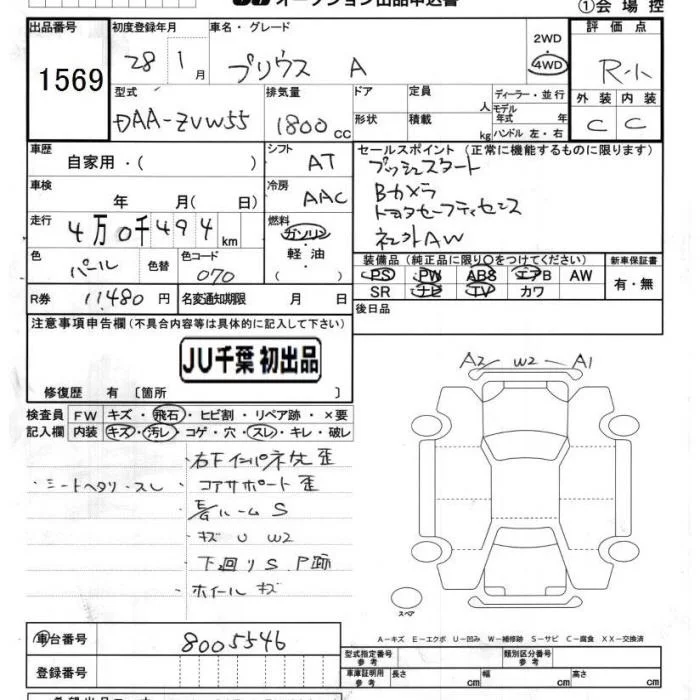 オークション出品申込書
①会場控
出品番号 初度登録年月 車名・グレード 評価点
1569 28 1月 プリウス A 2WD・4WD R-1
型式 排気量 ドア 定員 ディーラー・並行 外装 内装
DAA-ZVW55 1800cc 形状 積載 人 kg モデル年式 年 ハンドル 左・右 C C
車歴 シフト セールスポイント(正常に機能するものに限ります)
自家用・( ) AT プッシュスタート
車検 冷房 Bカメラ
年 月( 日) AAC トヨタセーフティセンス
走行 燃料 社外AW
4万0千494km ガソリン
色 色替 色コード 軽油 装備品(純正品に限り〇をつけてください) 新車保証書
パール 070 ( ) PS PW ABS エアB AW 有・無
SR ナビ TV カワ
R券 11480円 名変通知期限 月 日 後日品
注意事項申告欄(不具合内容等は具体的に記入して下さい)
JU千葉 初出品
A2 W2 A1
修復歴 有 〔箇所 〕
検査員 FW キズ・飛石・ヒビ割・リペア跡・×要
記入欄 内装 キズ・汚レ・コゲ・穴・スレ・キレ・破レ
・シートヘタリ・スレ
・右下インパネ先歪
・コアサポート歪
・ルームS
・キズU W2
・下廻りS P跡
・ホイールキズ
スペア
A-キズ E-エクボ U-凹み W-補修跡 S-サビ C-腐食 XX-交換済
車台番号 8005546
型式指定番号 参考 類別区分番号 参考
登録番号 車庫証明用 参考 長さ cm 幅 cm 高さ cm